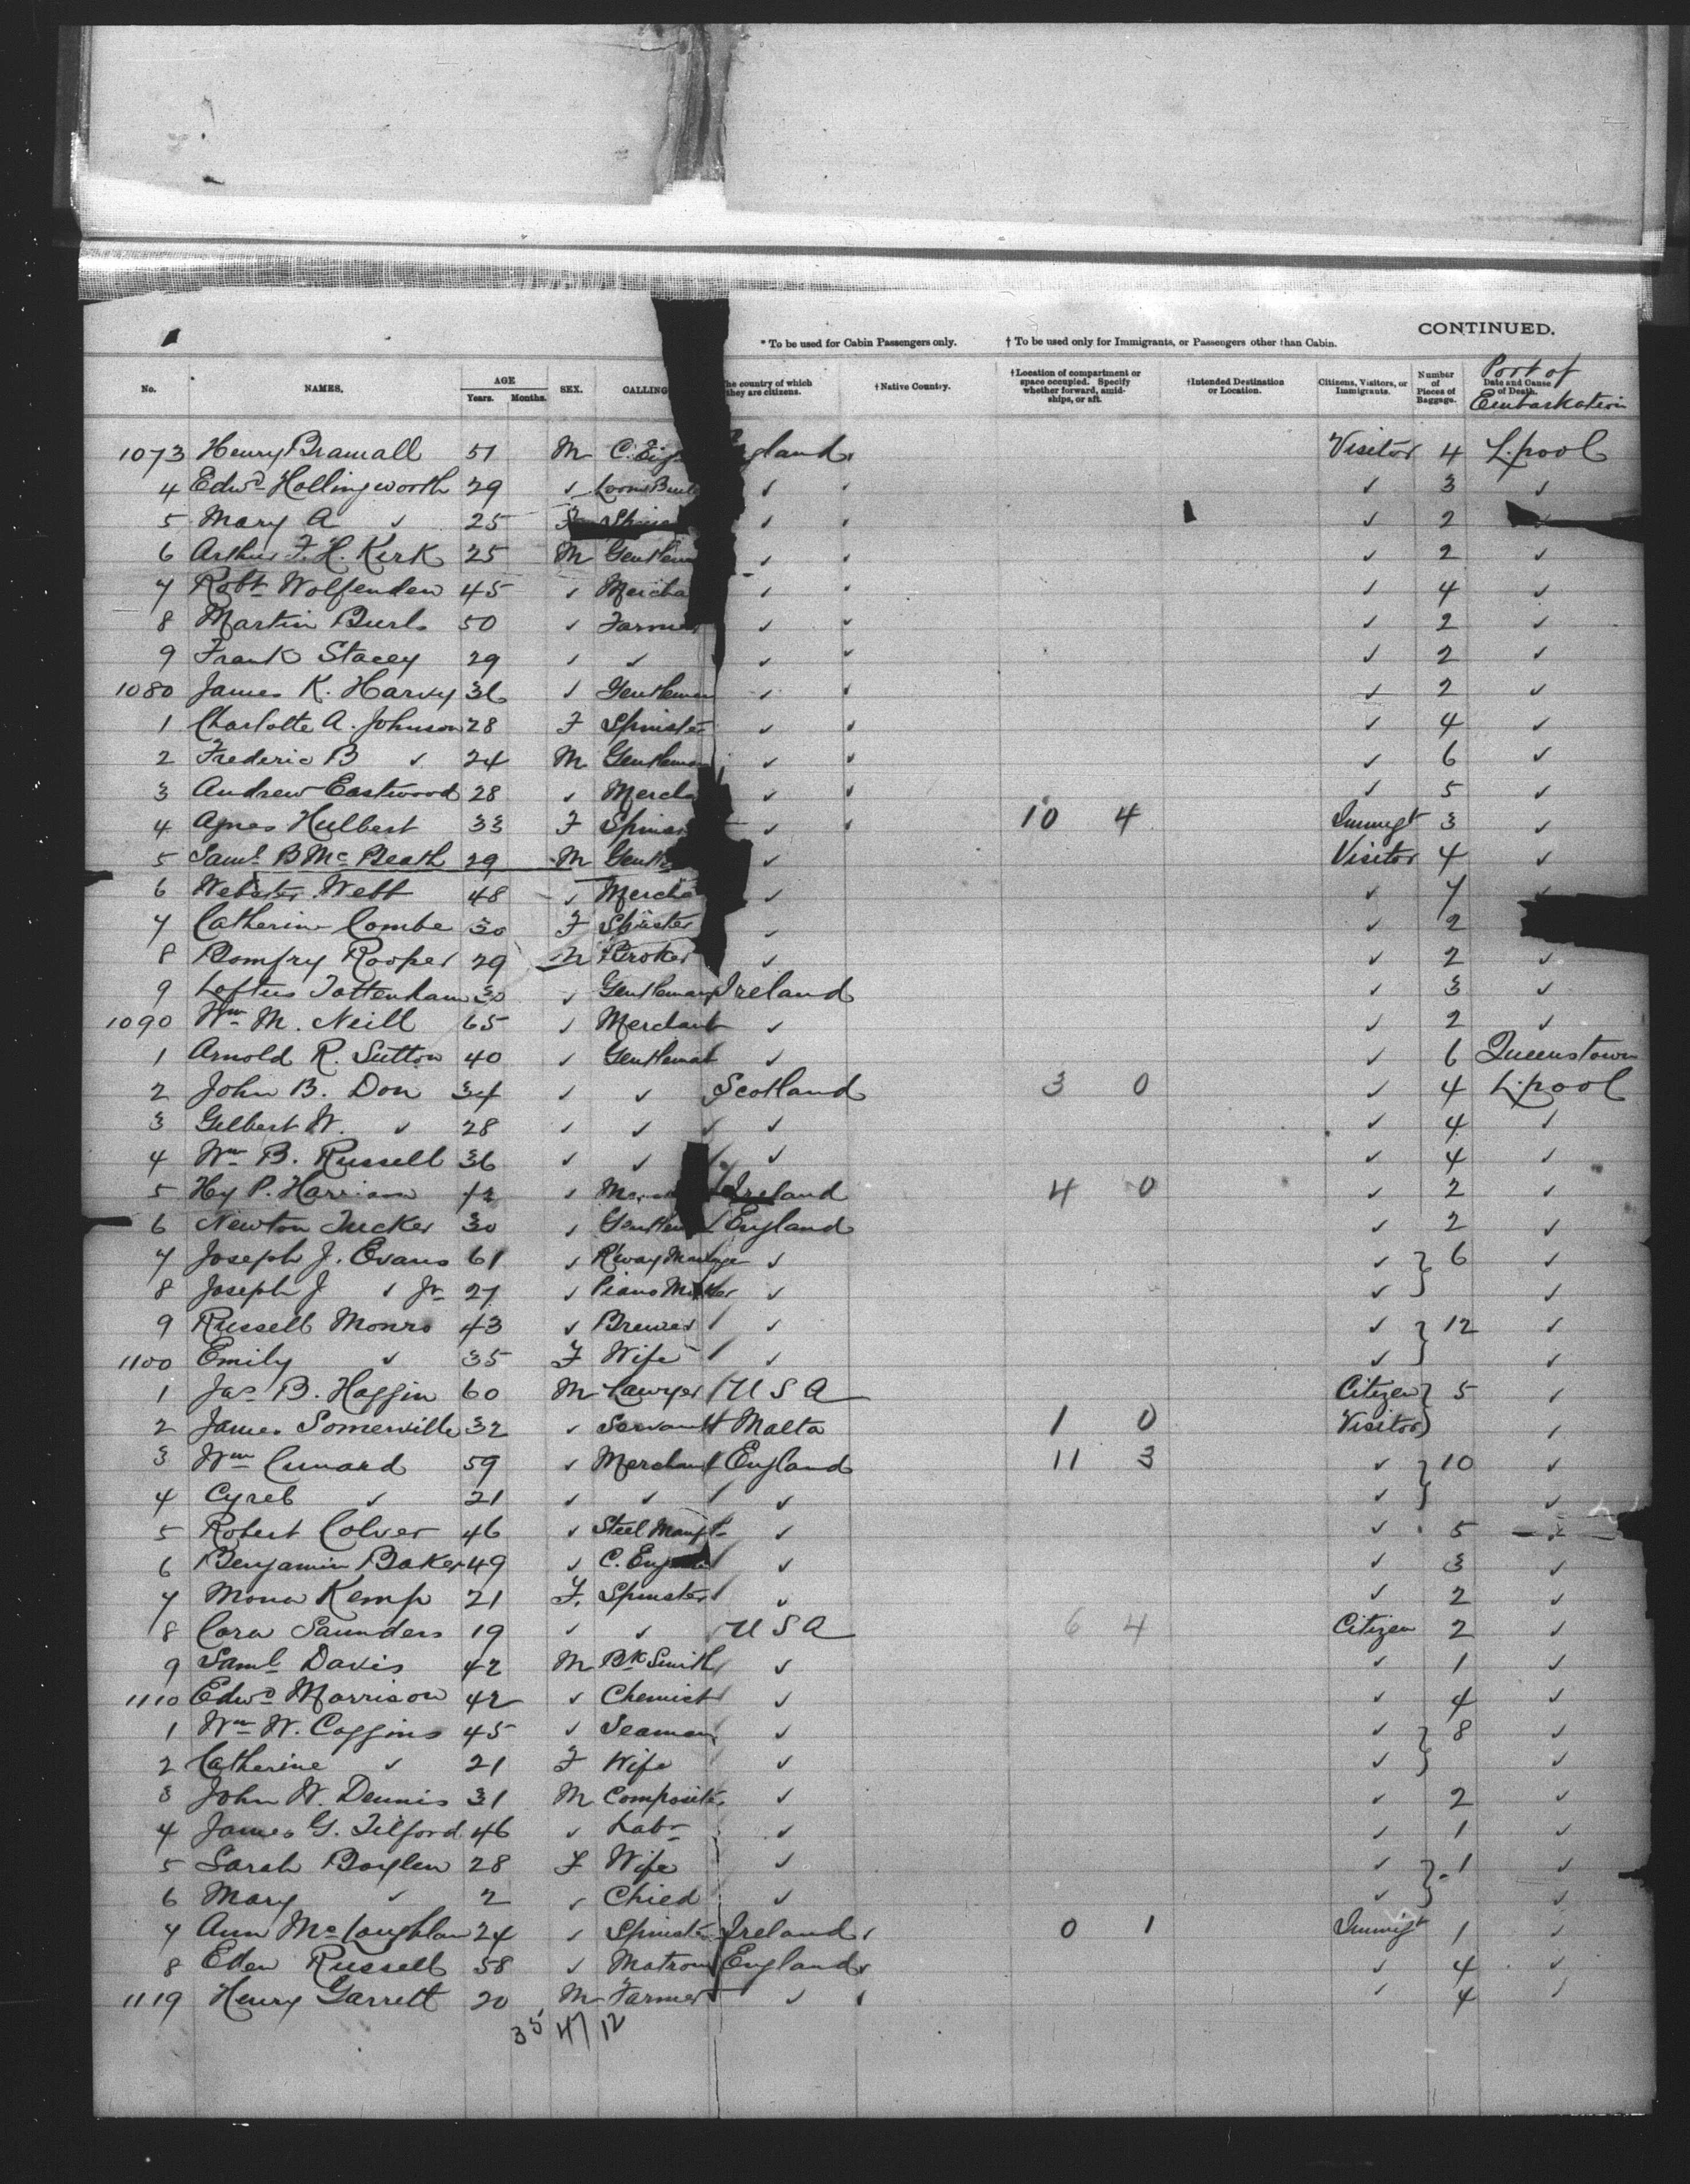 CONTINUED.
* To be used for Cabin Passengers only. † To be used only for Immigrants, or Passengers other than Cabin.
No. NAMES. AGE Years. Months. SEX. CALLING he country of which they are citizens. † Native Country. † Location of compartment or space occupied. Specify whether forward, amidships, or aft. † Intended Destination or Location. Citizens, Visitors, or Immigrants. Number of Pieces of Baggage. Date and Cause of Death. Port of Embarkation
1073 Henry Bramall 51 M C. Eng gland Visitor 4 L.pool
4 Edwd Hollingworth 29 ✓ ✓ ✓ 3 ✓
5 Mary A ✓ 25 ✓ ✓ 2 ✓
6 Arthur F. H. Kirk 25 M Gentlem ✓ ✓ 2 ✓
7 Robt Wolfenden 45 ✓ Mercha ✓ ✓ 4 ✓
8 Martin 50 ✓ Farmer ✓ ✓ 2 ✓
9 Frank Stacey 29 ✓ ✓ ✓ ✓ 2 ✓
1080 James K. Harvy 36 ✓ Gentleman ✓ ✓ 2 ✓
1 Charlotte A. Johnson 28 F Spinster ✓ ✓ 4 ✓
2 Frederic B ✓ 24 M Gentleman ✓ ✓ 6 ✓
3 Andrew Eastwood 28 ✓ Mercha ✓ ✓ 5 ✓
4 Agnes Hulbert 33 F Spins ✓ 10 4 Immigt 3 ✓
5 Saml B McBeath 29 M Gentle ✓ Visitor 4 ✓
6 Webster Webb 48 ✓ Mercha ✓ ✓ 7 ✓
7 Catherine Combe 30 F Spinster ✓ ✓ 2
8 Bomfry Rooper 29 M Broker ✓ ✓ 2 ✓
9 Loftus Tottenham 30 ✓ Gentleman Ireland ✓ 3 ✓
1090 Wm M. Neill 65 ✓ Merchant ✓ ✓ 2 ✓
1 Arnold R. Sutton 40 ✓ Gentleman ✓ ✓ 6 Queenstown
2 John B. Don 34 ✓ ✓ Scotland 3 0 ✓ 4 L.pool
3 Gilbert W. ✓ 28 ✓ ✓ ✓ ✓ 4 ✓
4 Wm B. Russell 36 ✓ ✓ ✓ ✓ 4 ✓
5 Hy P. Harrison 42 ✓ Ireland 4 0 ✓ 2 ✓
6 Newton Tucker 30 ✓ Gentlem England ✓ 2 ✓
7 Joseph J. Evans 61 ✓ R'way Manager ✓ ✓ 6 ✓
8 Joseph J ✓ Jr 27 ✓ Piano Maker ✓ ✓ ✓
9 Russell Monro 43 ✓ Brewer ✓ ✓ 12 ✓
1100 Emily ✓ 35 F Wife ✓ ✓ ✓
1 Jas B. Haggin 60 M Lawyer U S A Citizen 5 ✓
2 James Somerville 32 ✓ Servant Malta 1 0 Visitor ✓
3 Wm Cunard 59 ✓ Merchant England 11 3 ✓ 10 ✓
4 Cyrel ✓ 21 ✓ ✓ ✓ ✓ ✓
5 Robert Colver 46 ✓ Steel Manuft ✓ ✓ 5 ✓
6 Benjamin Baker 49 ✓ C. Engineer ✓ ✓ 3 ✓
7 Mona Kemp 21 F. Spinster ✓ ✓ 2 ✓
8 Cora Saunders 19 ✓ ✓ U S A 6 4 Citizen 2 ✓
9 Saml Davis 42 M Bk Smith ✓ ✓ 1 ✓
1110 Edwd Morrison 42 ✓ Chemist ✓ ✓ 4 ✓
1 Wm W. Coggins 45 ✓ Seaman ✓ ✓ 8 ✓
2 Catherine ✓ 21 F Wife ✓ ✓ ✓
3 John W. Dennis 31 M Composite ✓ ✓ 2 ✓
4 James G. Tilford 46 ✓ Labr ✓ ✓ 1 ✓
5 Sarah Boylen 28 F Wife ✓ ✓ 1 ✓
6 Mary ✓ 2 ✓ Child ✓ ✓ ✓
7 Ann McLoughlan 24 ✓ Spinster Ireland 0 1 Immigt 1 ✓
8 Eden Russell 58 ✓ Matron England ✓ 4 ✓
1119 Henry Garrett 20 M Farmer ✓ ✓ 4 ✓
35 47 12